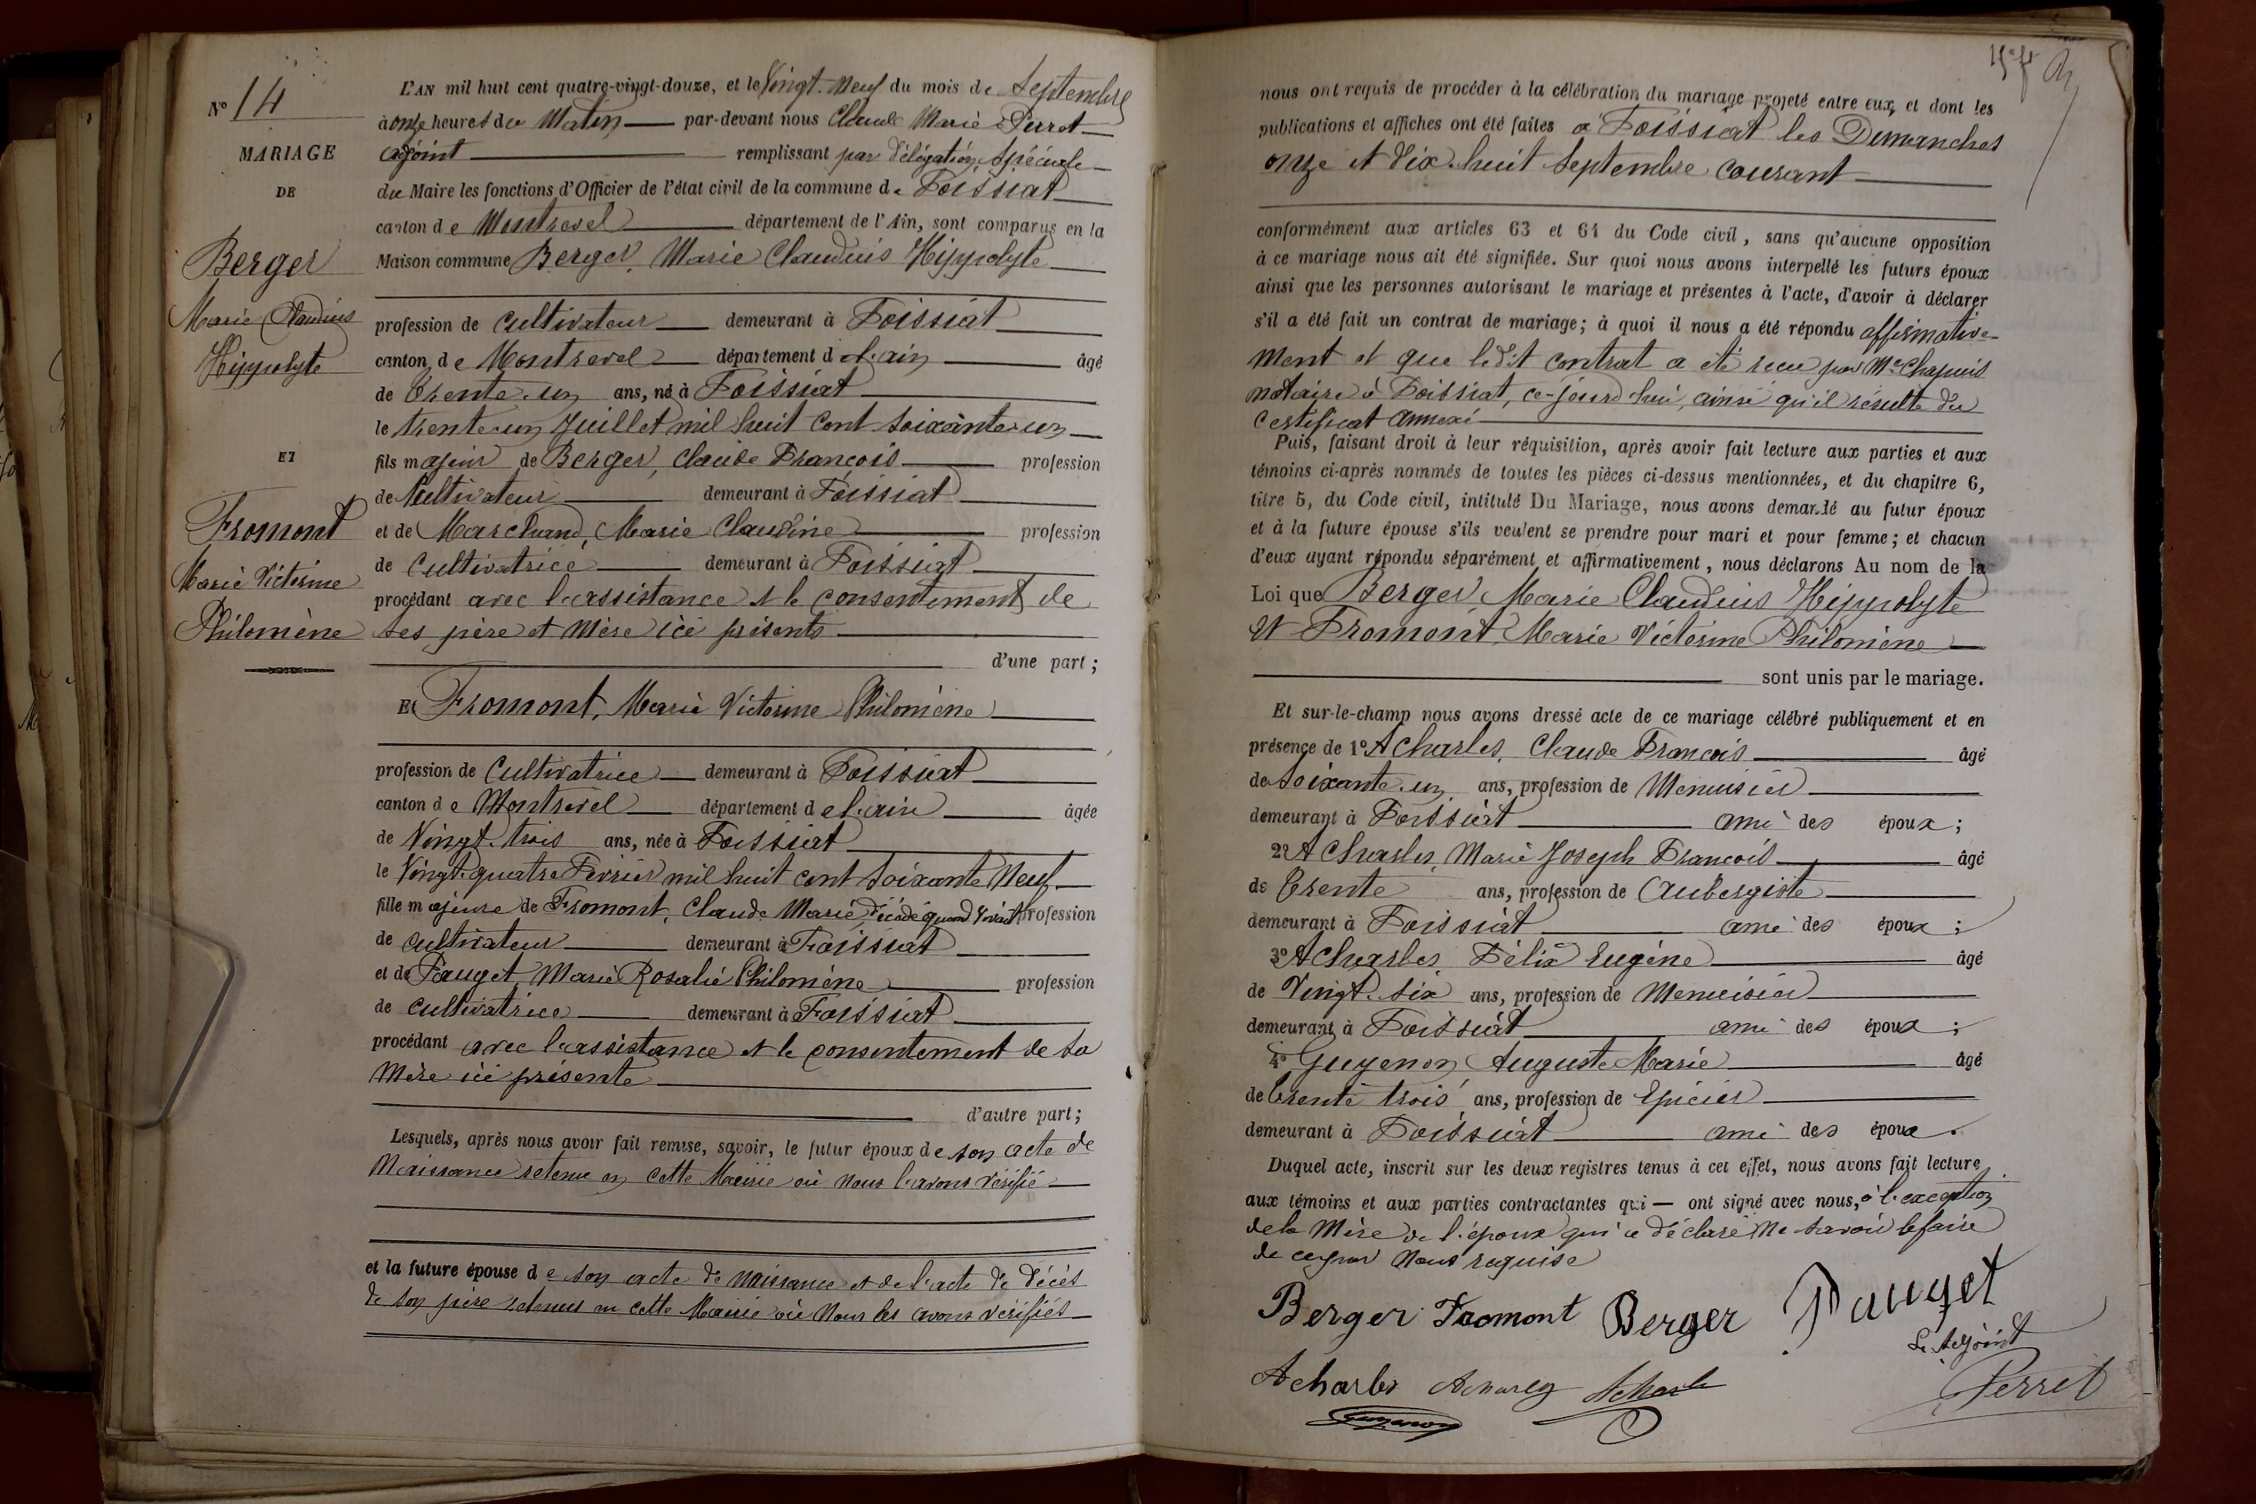 N° 14
MARIAGE
DE
Berger
Marie Claudius
Hippolyte
ET
Fromont
Marie Victorine
Philomène
L'AN mil huit cent quatre-vingt-douze, et le Vingt-Neuf du mois de Septembre
à onze heures du Matin par-devant nous Claude Marie Perret
adjoint remplissant par délégation spéciale
du Maire les fonctions d'Officier de l'état civil de la commune de Foissiat
canton de Montrevel département de l'Ain, sont comparus en la
Maison commune Berger, Marie Claudius Hippolyte
profession de cultivateur demeurant à Foissiat
canton de Montrevel département de l'ain âgé
de trente-un ans, né à Foissiat
le trente-un Juillet mil huit cent soixante-un
fils majeur de Berger, Claude François profession
de Cultivateur demeurant à Foissiat
et de Marchand, Marie Claudine profession
de cultivatrice demeurant à Foissiat
procédant avec l'assistance et le consentement de
ses père et mère ici présents
d'une part;
Et Fromont, Marie Victorine Philomène
profession de Cultivatrice demeurant à Foissiat
canton de Montrevel département de l'ain âgée
de Vingt-trois ans, née à Foissiat
le Vingt-quatre Février mil huit cent soixante Neuf
fille majeure de Fromont, Claude Marie décédé quand vivait profession
de cultivateur demeurant à Foissiat
et de Pauget, Marie Rosalie Philomène profession
de cultivatrice demeurant à Foissiat
procédant avec l'assistance et le consentement de sa
Mère ici présente
d'autre part;
Lesquels, après nous avoir fait remise, savoir, le futur époux de son acte de
Naissance retenu en cette Mairie où nous l'avons vérifié
et la future épouse de son acte de naissance et de l'acte de décès
de son père retenus en cette Mairie où nous les avons vérifiés
nous ont requis de procéder à la célébration du mariage projeté entre eux, et dont les
publications et affiches ont été faites à Foissiat les Dimanches
onze et dix-huit Septembre courant
conformément aux articles 63 et 64 du Code civil, sans qu'aucune opposition
à ce mariage nous ait été signifiée. Sur quoi nous avons interpellé les futurs époux
ainsi que les personnes autorisant le mariage et présentes à l'acte, d'avoir à déclarer
s'il a été fait un contrat de mariage; à quoi il nous a été répondu affirmative-
ment et que ledit contrat a été reçu par Me Chapuis
notaire à Foissiat, ce-jourd'hui, ainsi qu'il résulte du
Certificat annexé
Puis, faisant droit à leur réquisition, après avoir fait lecture aux parties et aux
témoins ci-après nommés de toutes les pièces ci-dessus mentionnées, et du chapitre 6,
titre 5, du Code civil, intitulé Du Mariage, nous avons demandé au futur époux
et à la future épouse s'ils veulent se prendre pour mari et pour femme; et chacun
d'eux ayant répondu séparément et affirmativement, nous déclarons Au nom de la
Loi que Berger Marie Claudius Hippolyte
et Fromont, Marie Victorine Philomène
sont unis par le mariage.
Et sur-le-champ nous avons dressé acte de ce mariage célébré publiquement et en
présence de 1° Acharles, Claude François âgé
de soixante-un ans, profession de Menuisier
demeurant à Foissiat ami des époux;
2° Acharles, Marie Joseph François âgé
de trente ans, profession de Aubergiste
demeurant à Foissiat ami des époux;
3° Acharles, Félix Eugène âgé
de Vingt-six ans, profession de Menuisier
demeurant à Foissiat ami des époux;
4° Guyenon Auguste Marie âgé
de trente trois ans, profession de Epicier
demeurant à Foissiat ami des époux.
Duquel acte, inscrit sur les deux registres tenus à cet effet, nous avons fait lecture
aux témoins et aux parties contractantes qui — ont signé avec nous, à l'exception
de la Mère de l'époux qui a déclaré ne savoir le faire
de ce par nous requise
Berger Fromont Berger Pauget
Le Adjoint
Acharles Acharles Acharles Perret
Guyenon